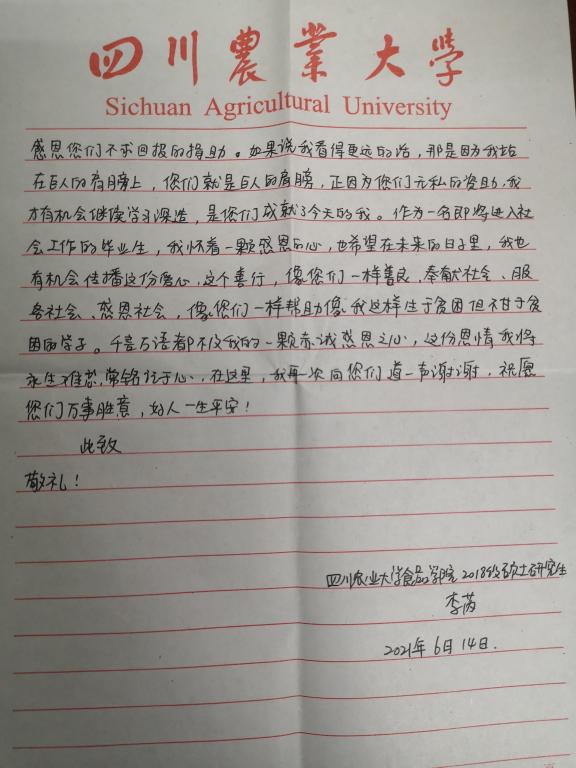 四川農業大學
Sichuan Agricultural University
感恩您们不求回报的捐助。如果说我看得更远的话，那是因为我站
在巨人的肩膀上，您们就是巨人的肩膀，正因为你们无私的资助，我
才有机会继续学习深造，是您们成就了今天的我。作为一名即将进入社
会工作的毕业生，我怀着一颗感恩的心，也希望在未来的日子里，我也
有机会传播这份爱心，这个善行，像您们一样善良，奉献社会、服
务社会、感恩社会，像您们一样帮助像我这样生于贫困但不甘于贫
困的学子。千言万语都不及我的一颗赤诚感恩之心，这份恩情我将
永生难忘，常铭记于心，在这里，我再一次向您们道一声谢谢，祝愿
您们万事胜意，好人一生平安！
此致
敬礼！
四川农业大学食品学院2018级硕士研究生
李芮
2021年6月14日.